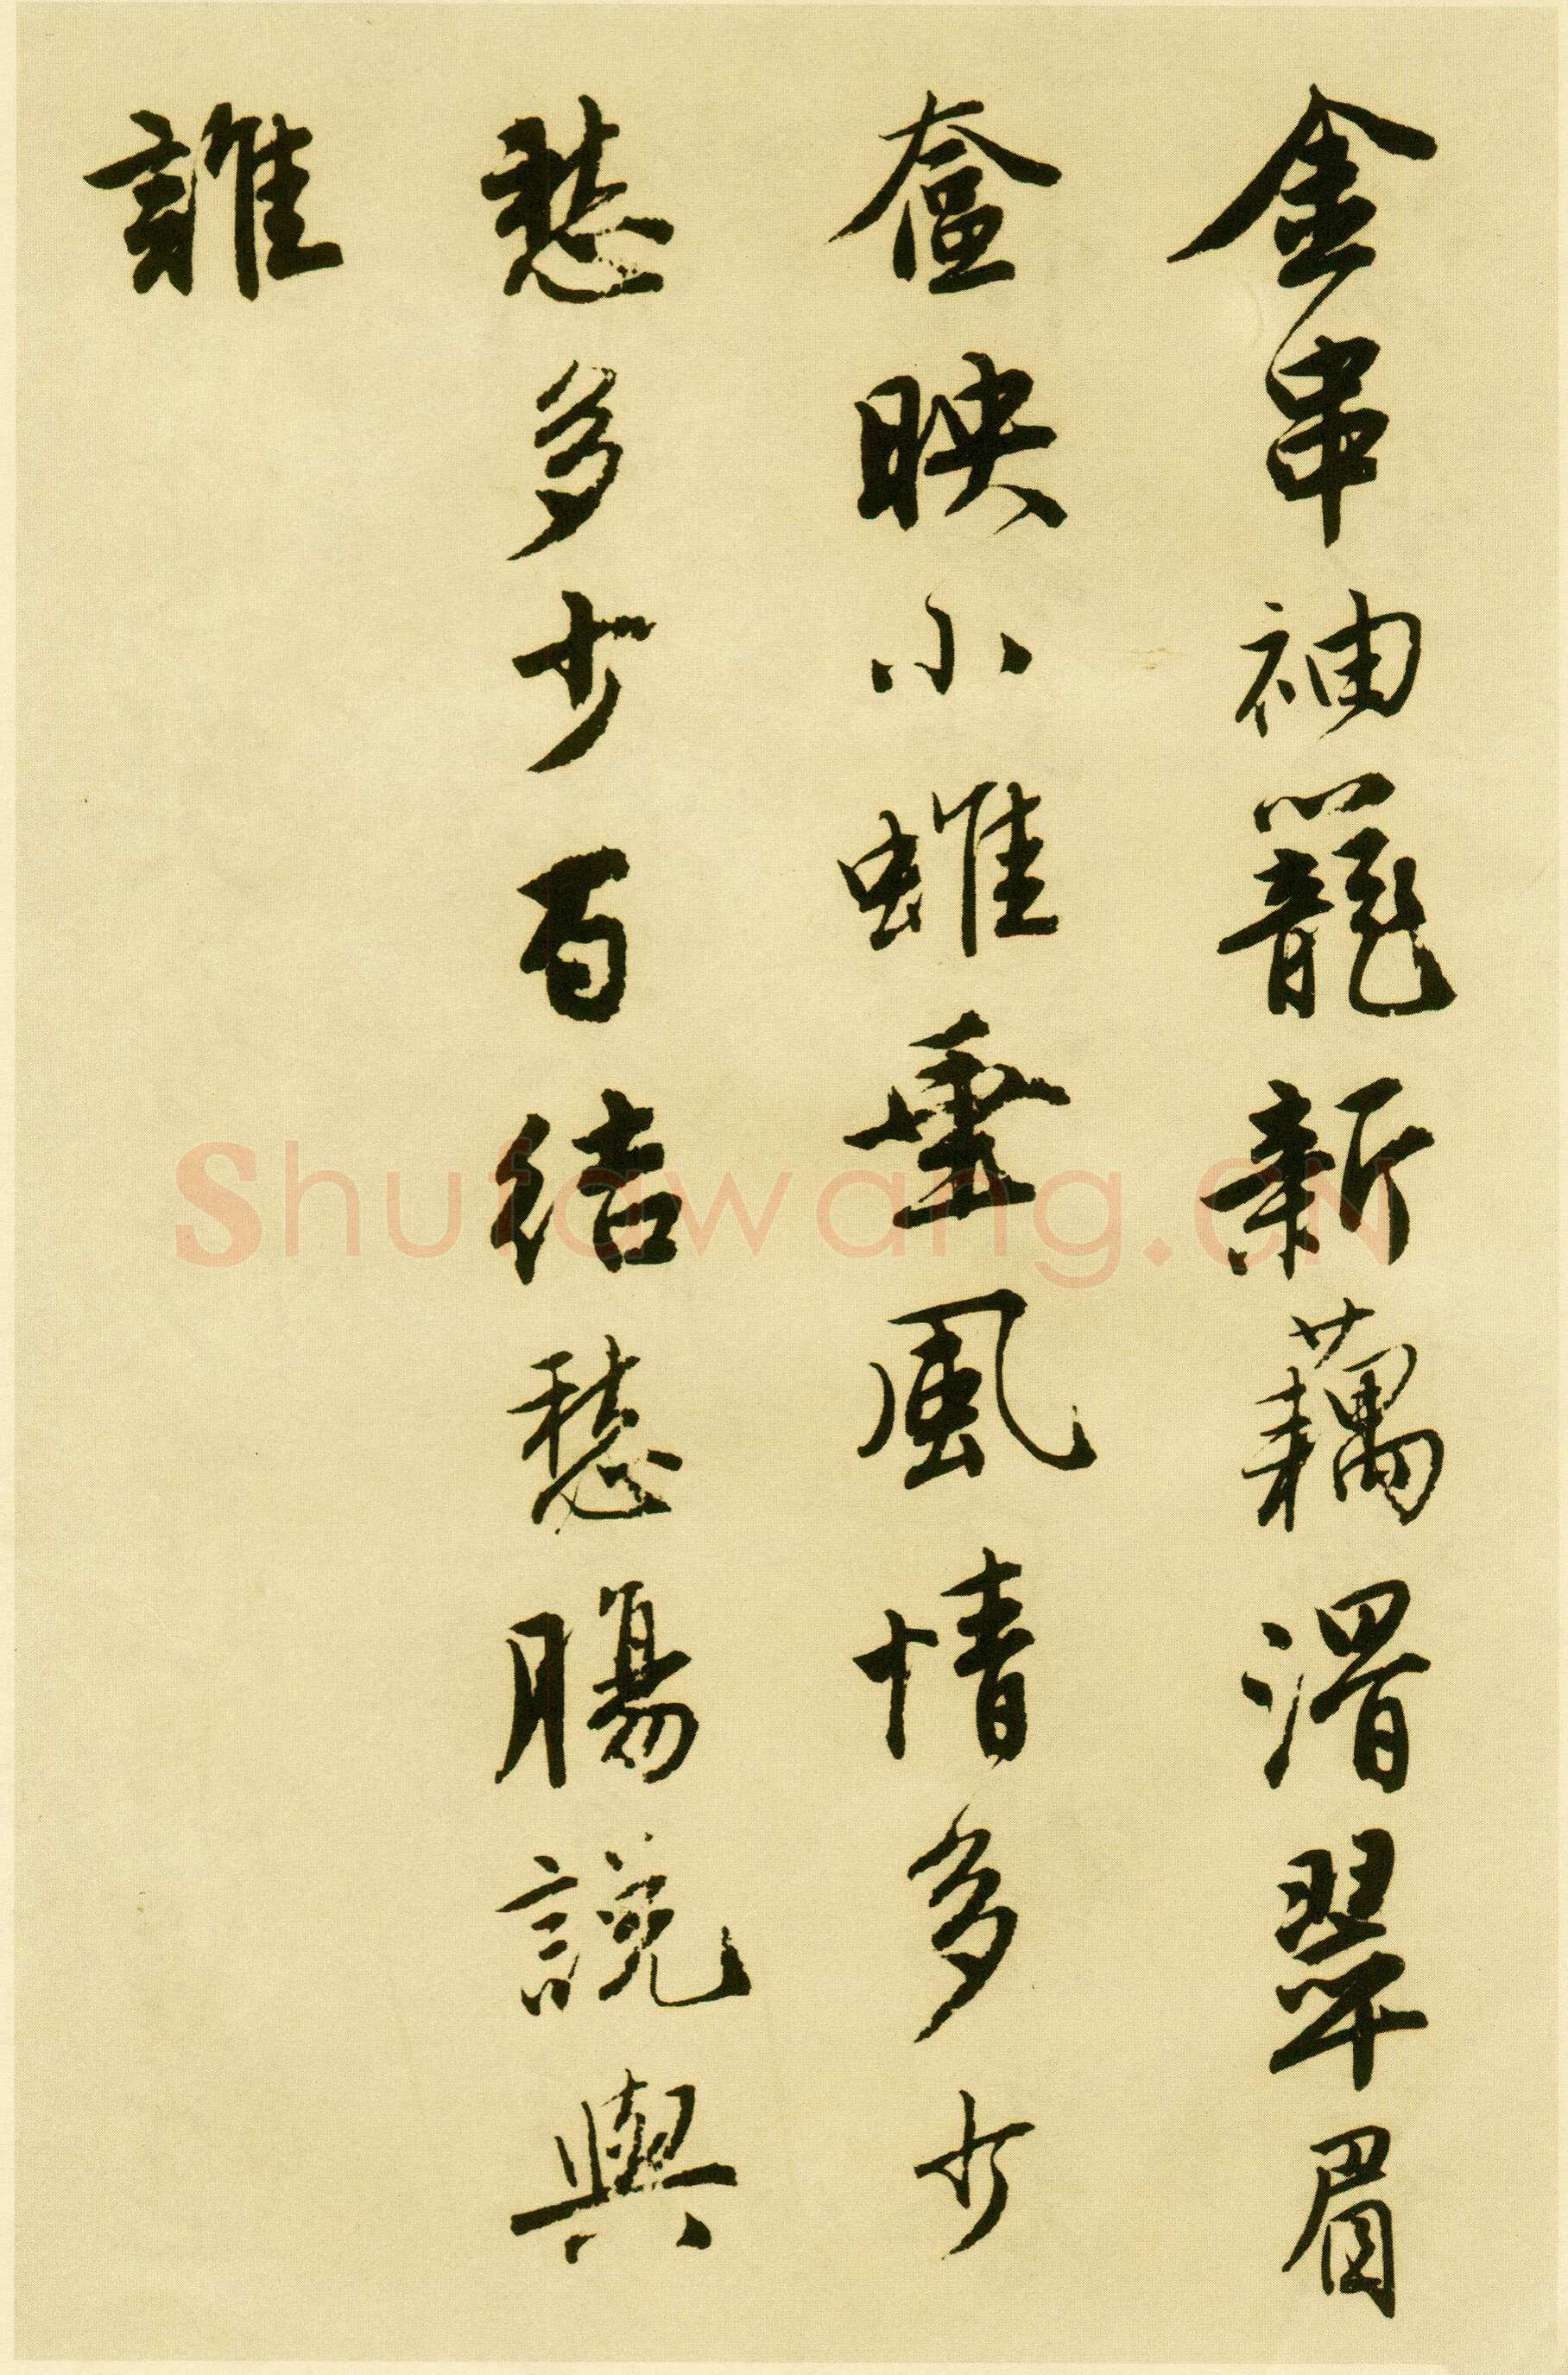 金串袖籠新藕滑翠眉
奩映小蛾垂風情多少
愁多少百結愁腸說與
誰
Shufawang.CN